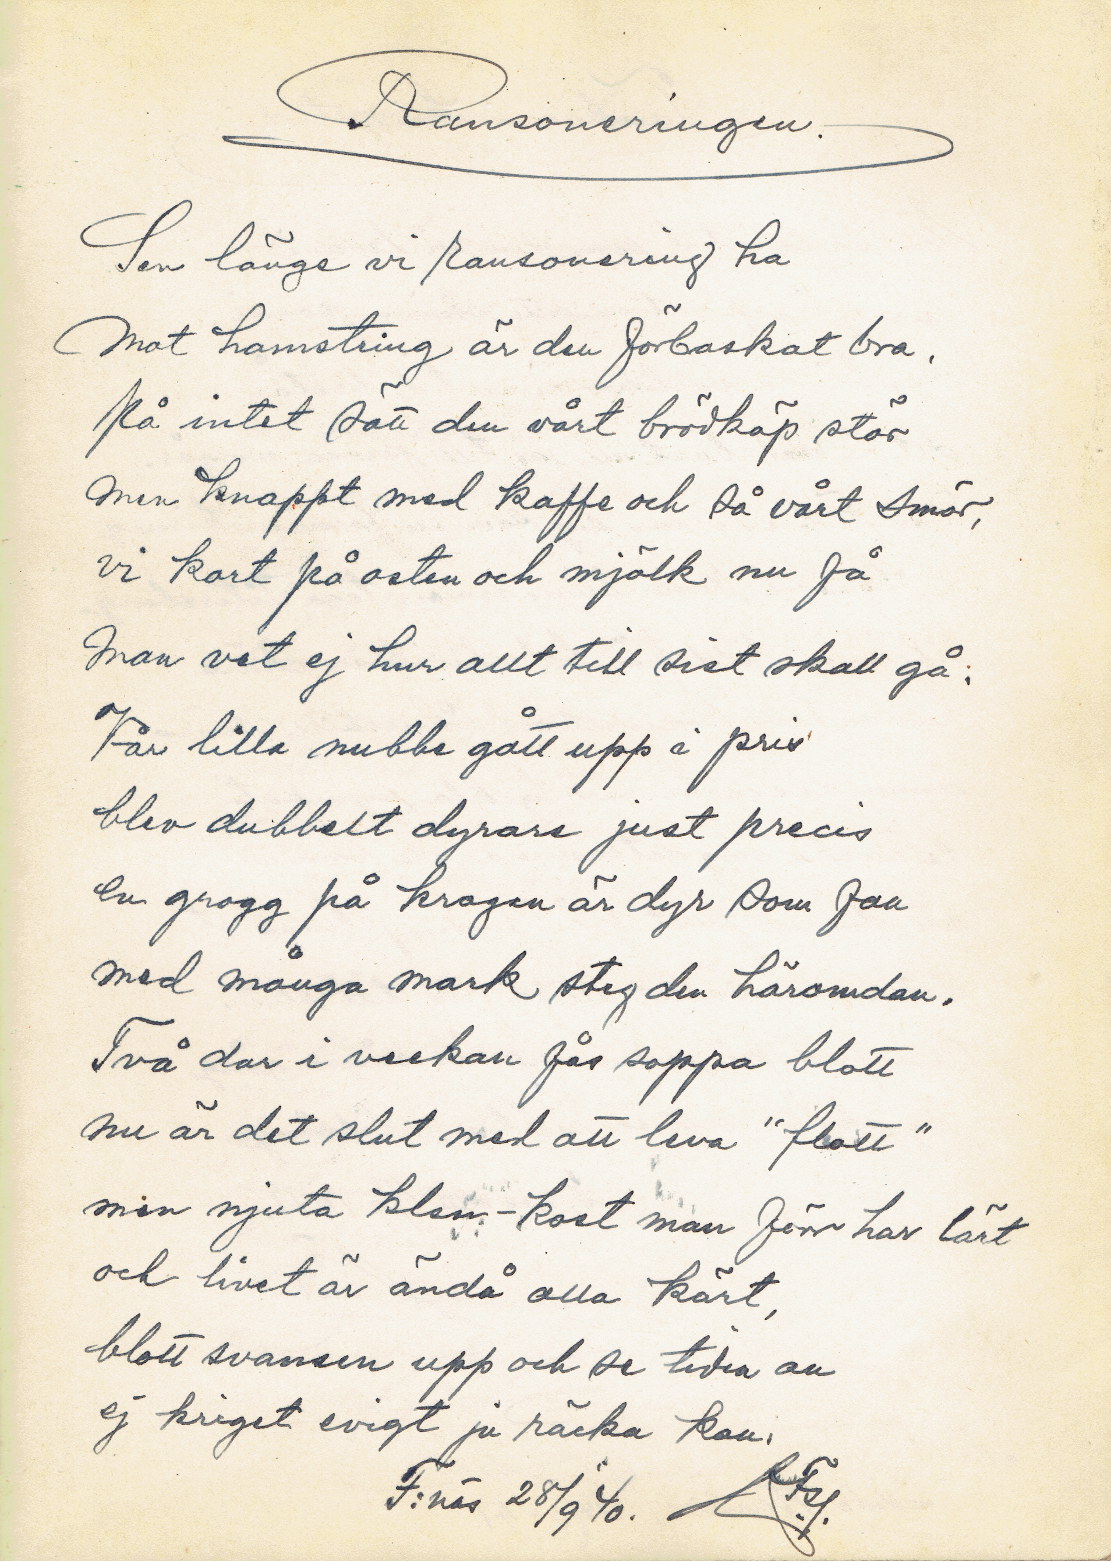 Ransoneringen.
Sen länge vi ransonering ha
mot hamstring är den förbaskat bra.
På intet sätt den vårt brödköp stör
men knappt med kaffe och så vårt smör,
vi kort på osten och mjölk nu få
man vet ej hur allt till sist skall gå.
Vår lilla nubbe gått upp i pris
blev dubbelt dyrare just precis
en grogg på krogen är dyr som fan
med många mark steg den häromdan.
Två dar i veckan fås soppa blott
nu är det slut med att leva "flott"
men njuta klen-kost man förr har lärt
och livet är ändå alla kärt,
blott svansen upp och se tiden an
ej kriget evigt ju räcka kan.
F:näs 28/9 40.